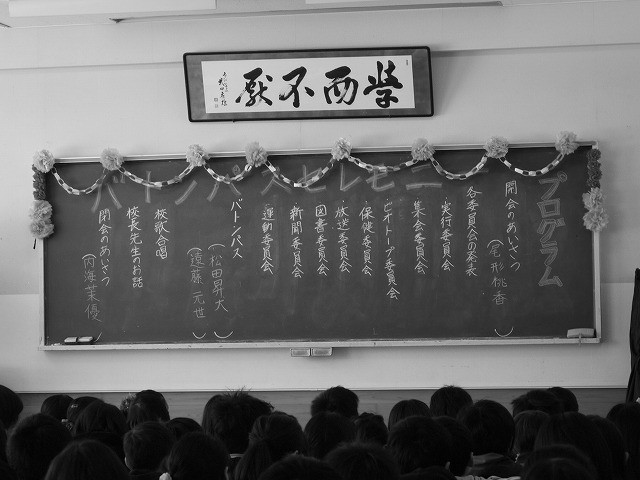 學而不厭
バトンパスセレモニー
プログラム
開会のあいさつ
(尾形桃香)
各委員会の発表
・実行委員会
・集会委員会
・ビオトープ委員会
・保健委員会
・放送委員会
・図書委員会
・新聞委員会
・運動委員会
バトンパス
(松田昇大)
(遠藤元世)
校歌合唱
校長先生のお話
閉会のあいさつ
(内海菜優)